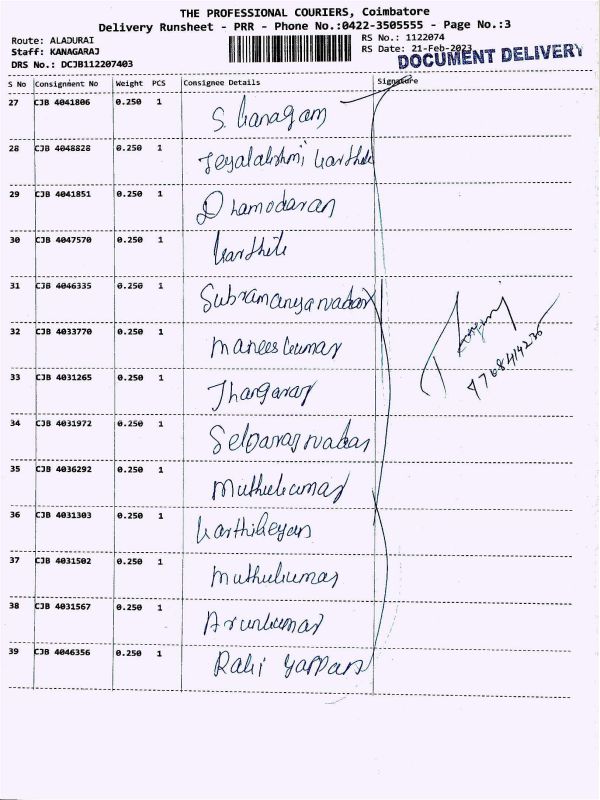 THE PROFESSIONAL COURIERS, Coimbatore
Delivery Runsheet - PRR - Phone No.:0422-3505555 - Page No.:3
Route: ALADURAI
Staff: KANAGARAJ
DRS No.: DCJB112207403
RS No.: 1122074
RS Date: 21-Feb-2023
DOCUMENT DELIVERY
S No Consignment No Weight PCS Consignee Details Signature
27 CJB 4041806 0.250 1 S. Kanagam
28 CJB 4048828 0.250 1 Jeyalakshmi Karthik
29 CJB 4041851 0.250 1 Dhamodaran
30 CJB 4047570 0.250 1 Karthik
31 CJB 4046335 0.250 1 Subramanya nadar
32 CJB 4033770 0.250 1 Maneeskumar
33 CJB 4031265 0.250 1 Thangaraj
34 CJB 4031972 0.250 1 Selvaraj nadar
35 CJB 4036292 0.250 1 Muthukumar
36 CJB 4031303 0.250 1 Karthikeyan
37 CJB 4031502 0.250 1 Muthukumar
38 CJB 4031567 0.250 1 Arunkumar
39 CJB 4046356 0.250 1